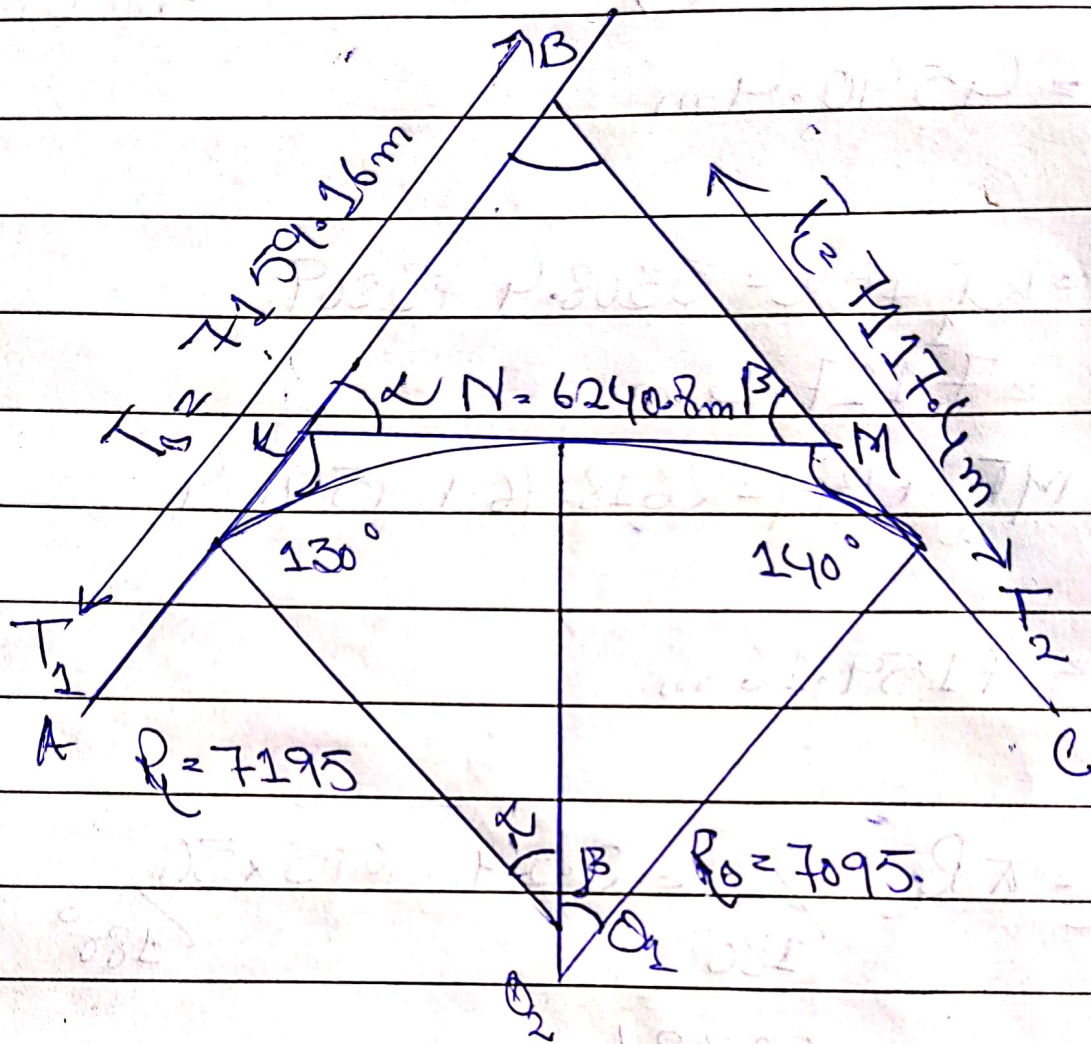 B
Ts = 7159.16m
TL = 7117.4m
K
α N = 6240.8m β
M
130°
140°
T1
T2
A
C
RL = 7195
α
β
Rs = 7095.
O1
O2